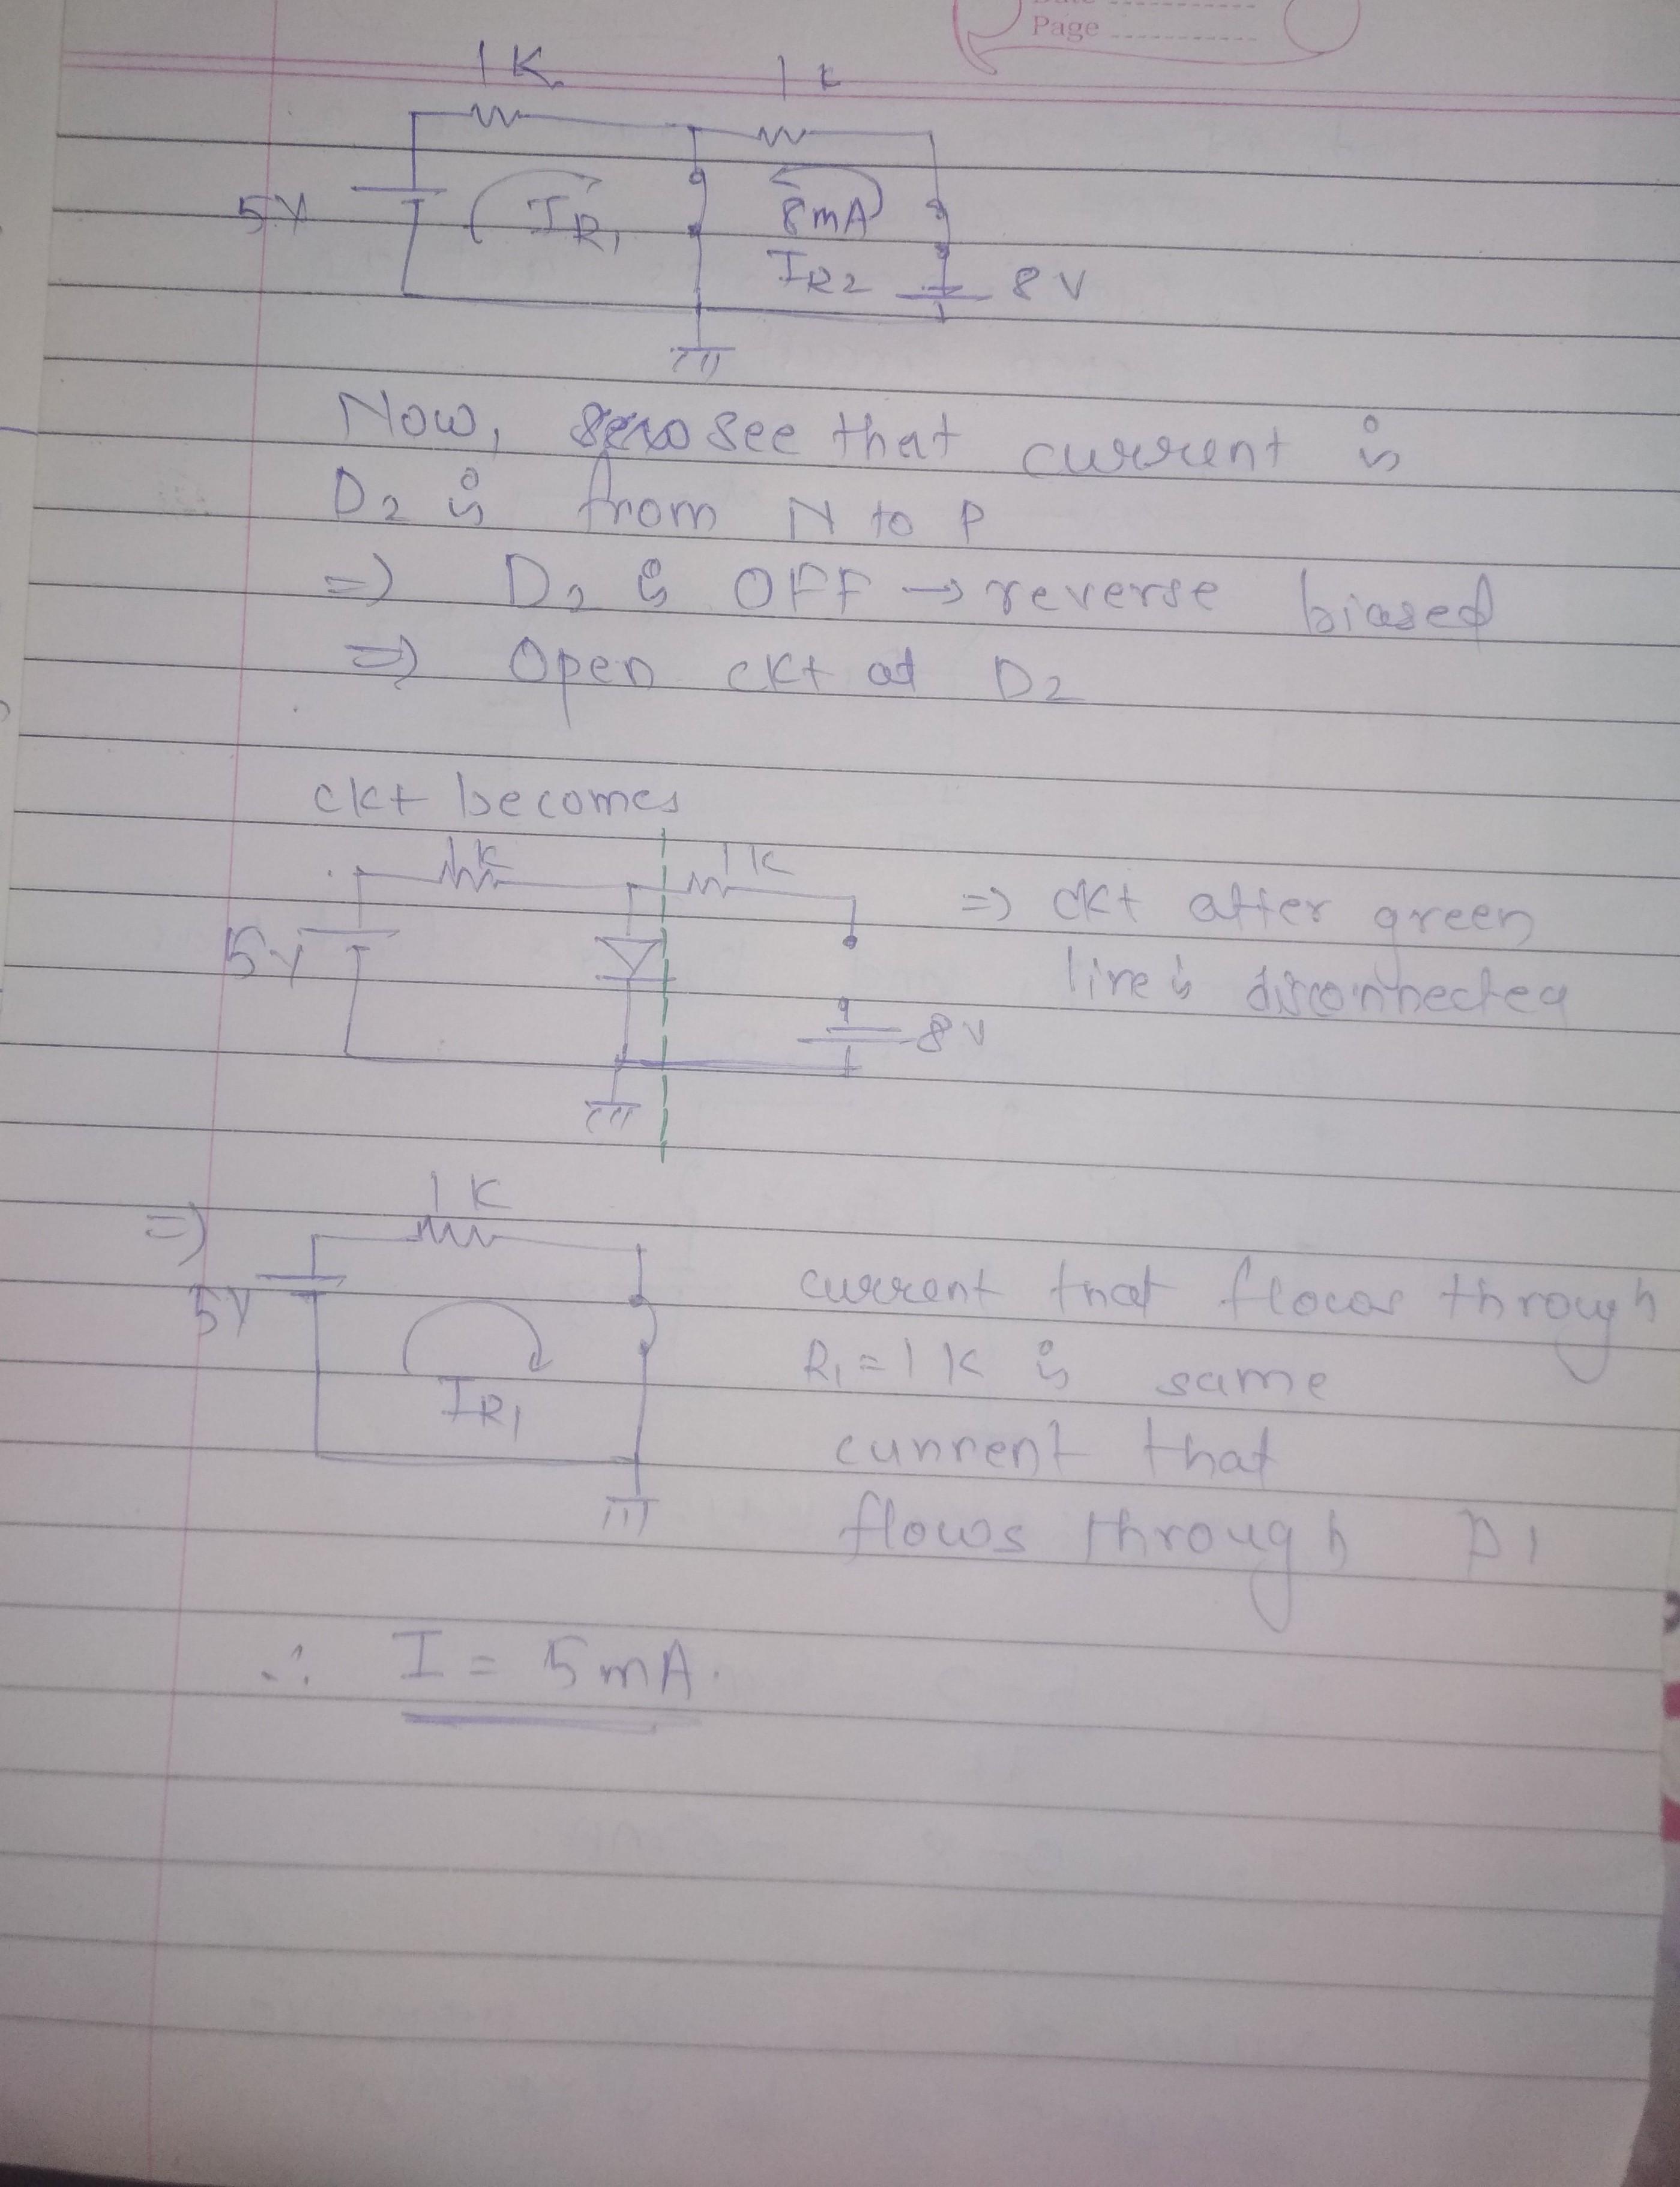 Page
1K
1K
5V
IR1
8mA
IR2
8V
Now, see that current is
D2 is from N to P
=) D2 is OFF → reverse biased
=) Open ckt at D2
ckt becomes
1K
1K
5V
8V
=) ckt after green
line is disconnected
=)
1K
5V
IR1
current that flows through
R1 = 1K is same
current that
flows through D1
∴ I = 5mA.